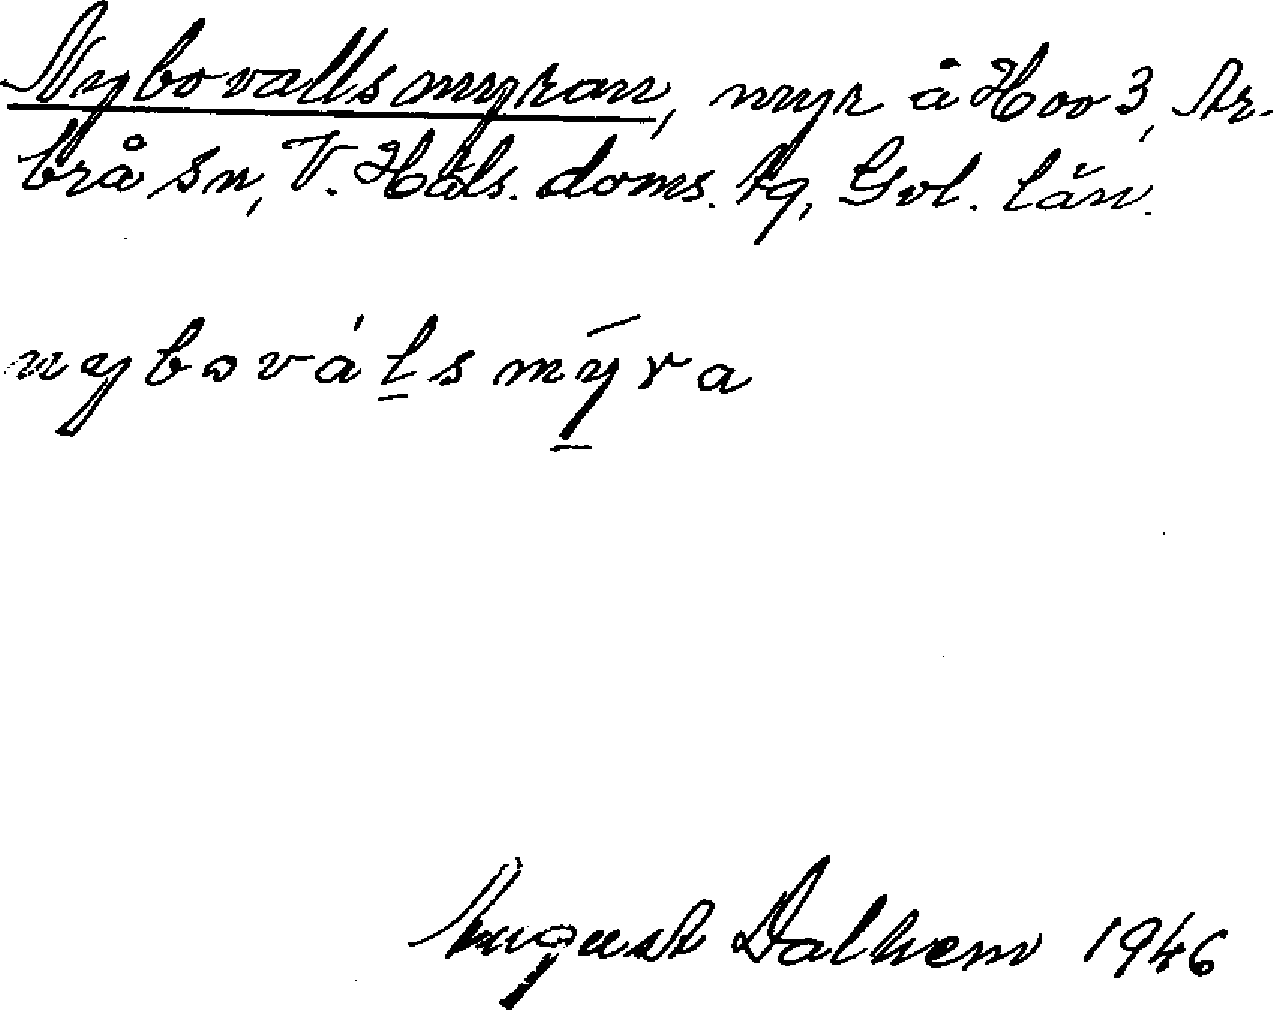 Nybovallsmyran, myr å Hov 3, Ar-
brå sn, V. Häls. doms. hg, Gvl. län.
nyboválsmýra
August Dalhem 1946